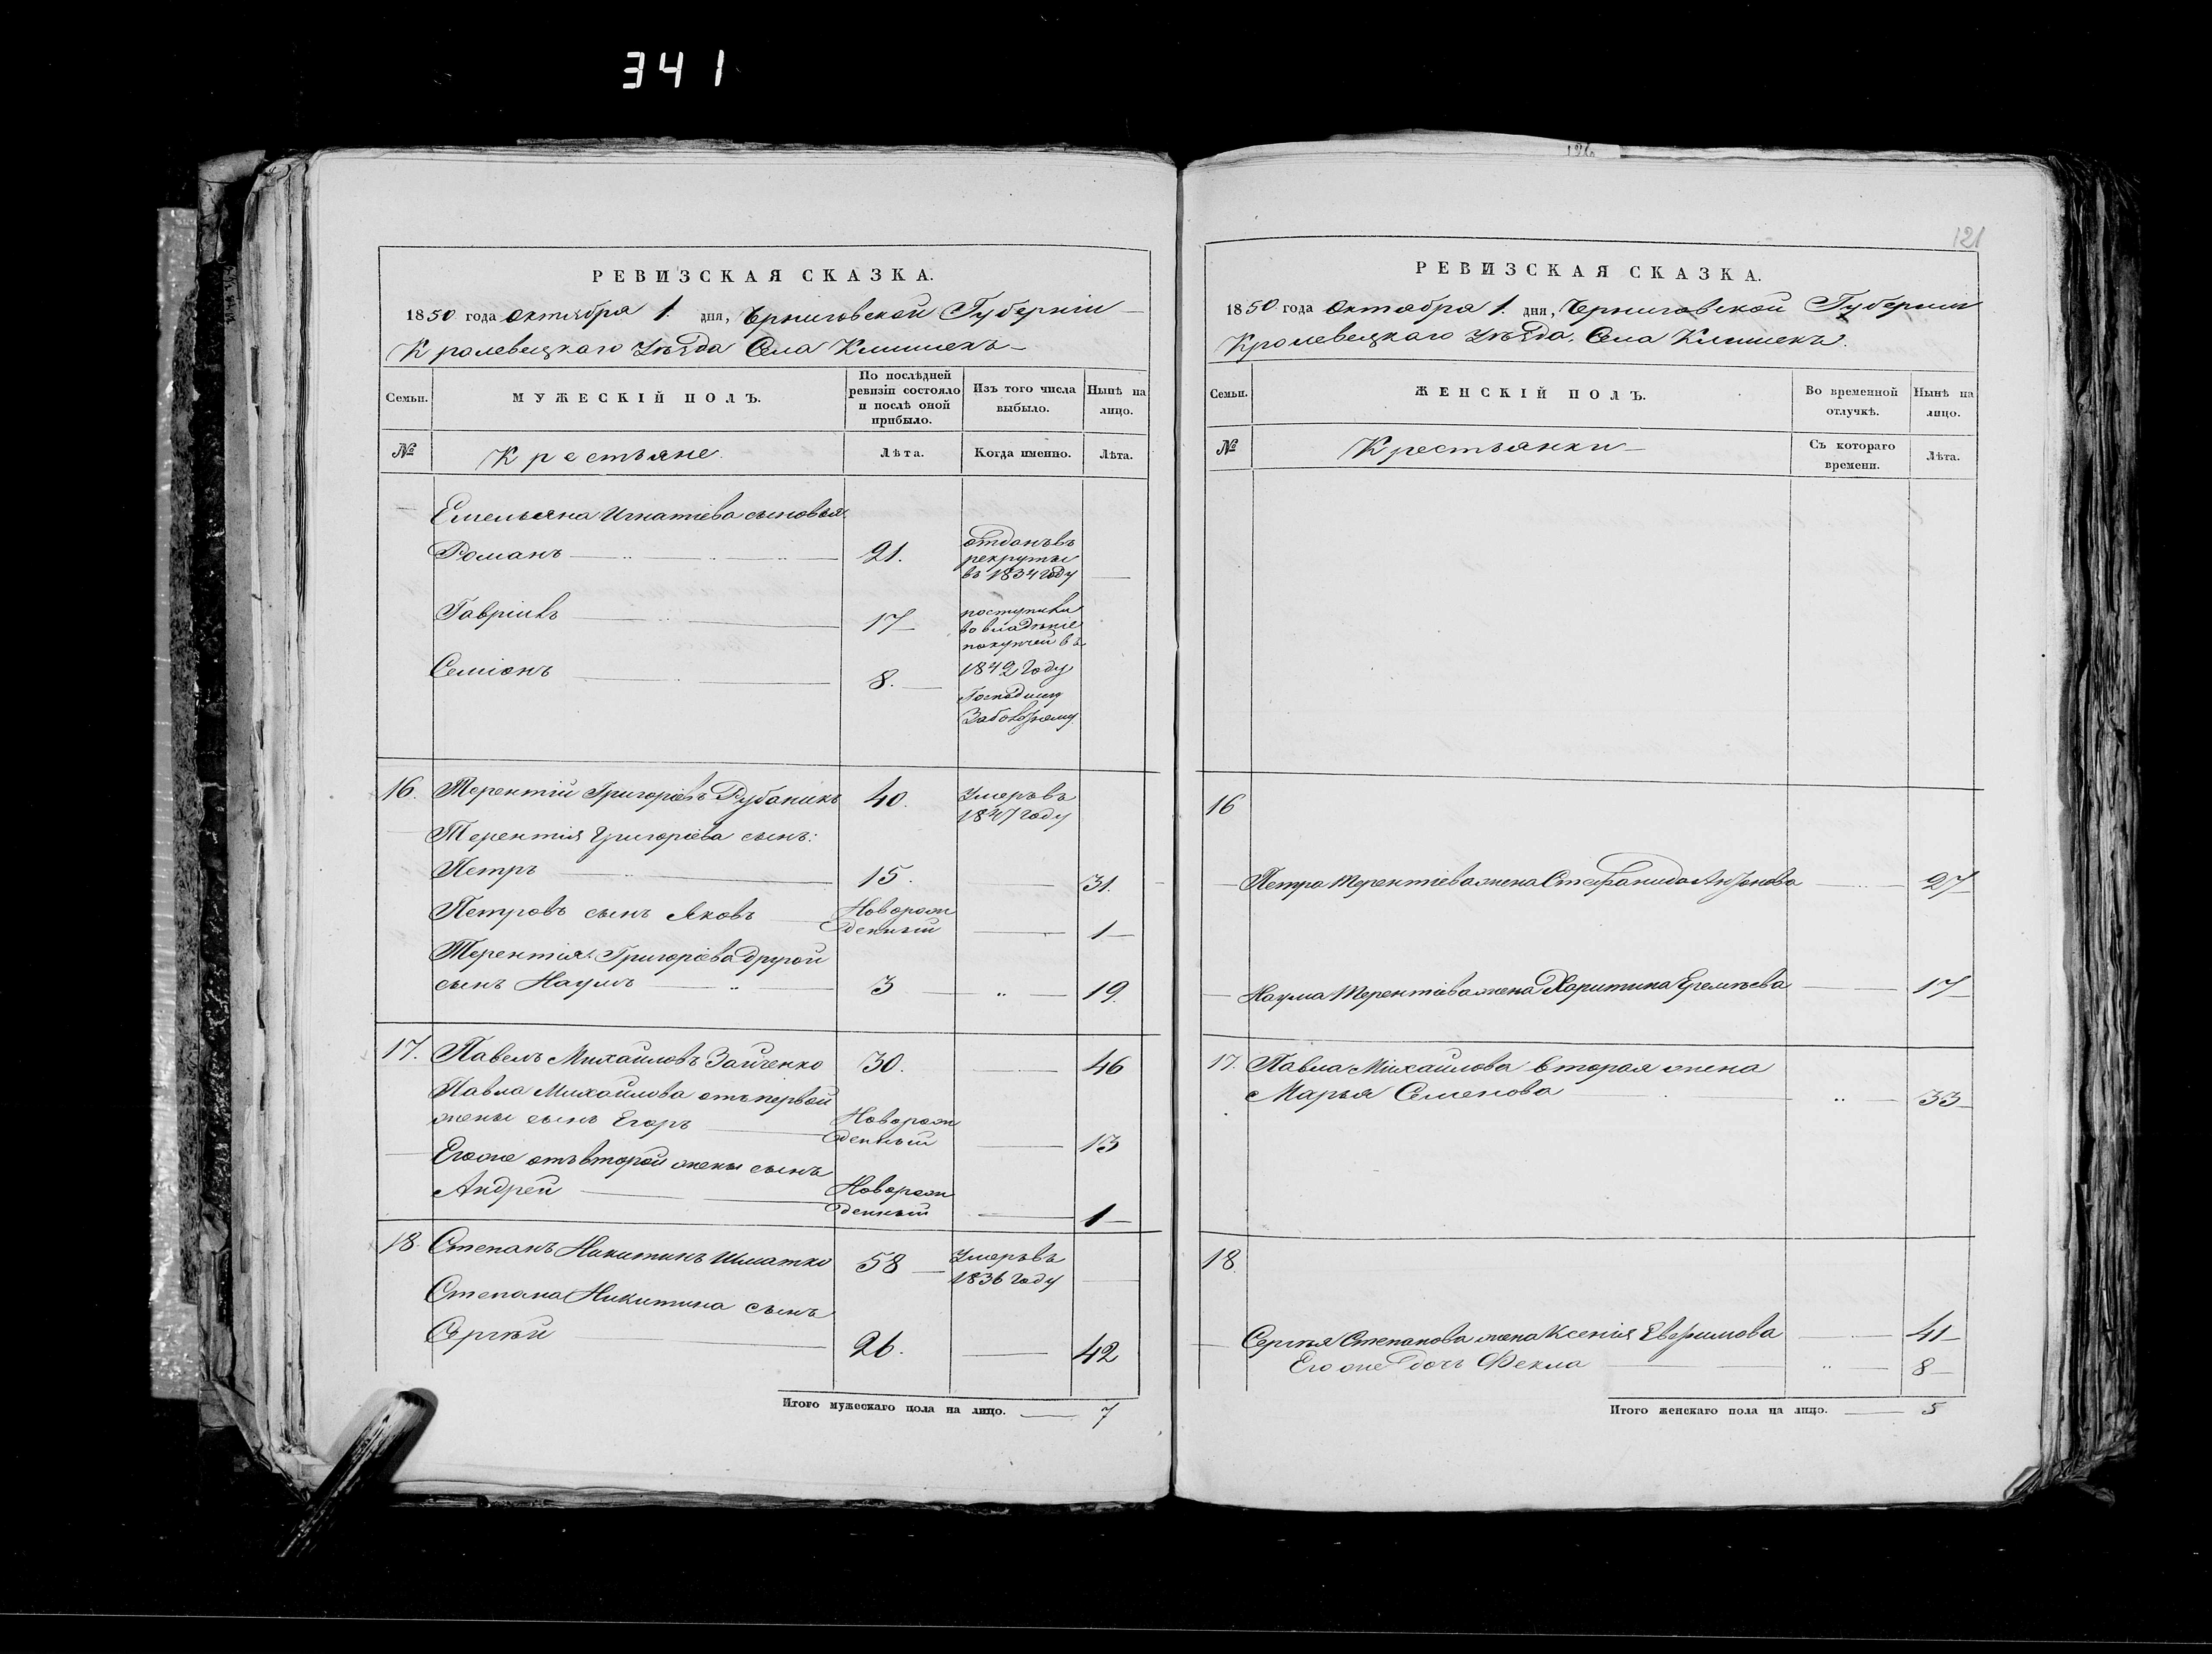 341
РЕВИЗСКАЯ СКАЗКА.
1850 года Октября 1. дня, Черниговской Губерніи
Кролевецкаго Уѣзда Села Клишекъ
Семьи.
МУЖЕСКІЙ ПОЛЪ.
По послѣдней
ревизіи состояло
и послѣ оной
прибыло.
Изъ того числа
выбыло.
Нынѣ на
лицо.
№
Крестьяне.
Лѣта.
Когда именно.
Лѣта.
Емельяна Игнатіева сыновья
Романъ 21. отданъ въ
рекруты
въ 1834 году
Гавріилъ 17 поступили
во владѣніе
покупчей въ
Семіонъ 8. 1842 году
Господину
16. Терентій Григоріевъ Рубаникъ 40. Умеръ въ
1847 году
Терентія Григоріева сынъ:
Петръ 15. 31.
Петровъ сынъ Яковъ Поворож
денный 1
Терентія Григоріева другой
сынъ Наумъ 3 19.
17. Павелъ Михайловъ Зайченко 30. 46
Павла Михайлова отъ первой
жены сынъ Егоръ Новорож
денный 13
Его же отъ второй жены сынъ
Андрей Новорож
денный 1
18. Степанъ Никитинъ Шматко 58 Умеръ въ
1836 году
Степана Никитина сынъ
Сергѣй 26. 42
Итого мужескаго пола на лицо. 7
126
121
РЕВИЗСКАЯ СКАЗКА.
1850 года Октября 1. дня, Черниговской Губерніи
Кролевецкаго Уѣзда, Села Клишекъ.
Семьи.
ЖЕНСКІЙ ПОЛЪ.
Во временной
отлучкѣ.
Нынѣ на
лицо.
№
Крестьянки
Съ котораго
времени.
Лѣта.
16
Петра Терентіева жена Стефанида Антонова 27
Наума Терентіева жена Харитина Еремѣева 17
17. Павла Михайлова вторая жена
Марья Семенова 33
18.
Сергѣя Степанова жена Ксенія Евфимова 41
Его же дочь Фекла 8
Итого женскаго пола на лицо. 5